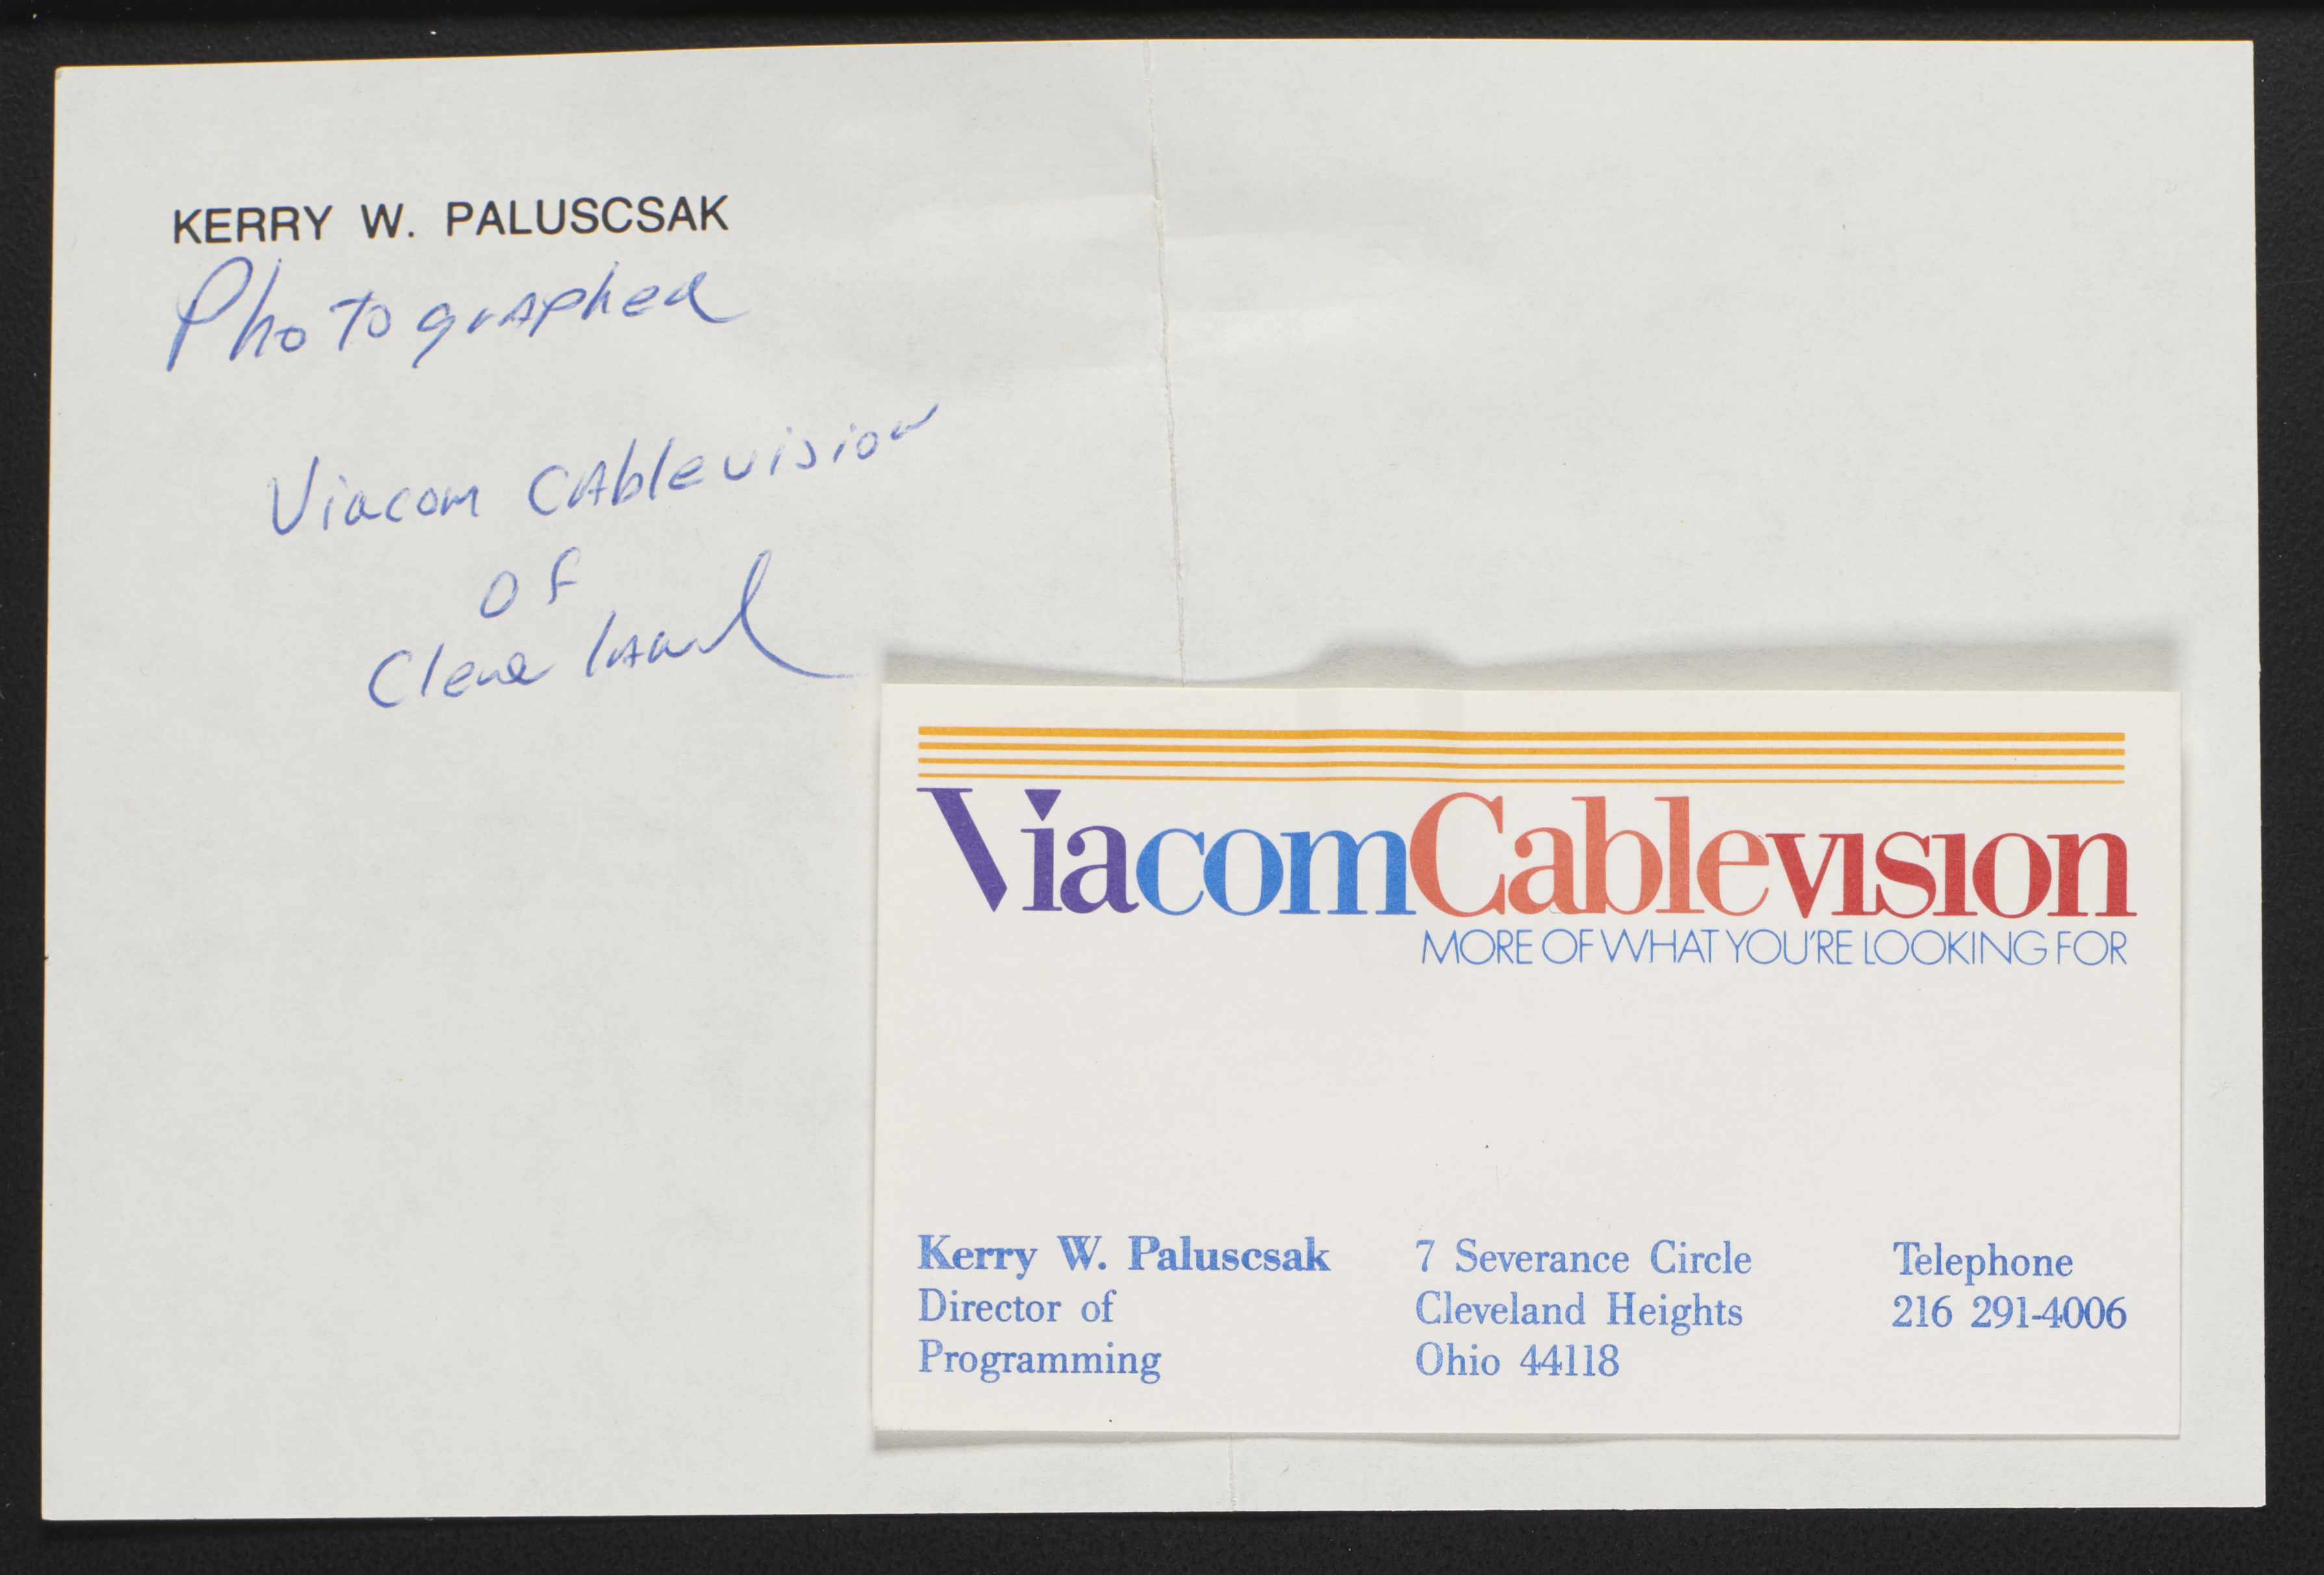 KERRY W. PALUSCSAK
Photographed
Viacom Cablevision
of
Cleveland
ViacomCablevision
MORE OF WHAT YOU'RE LOOKING FOR
Kerry W. Paluscsak
Director of
Programming
7 Severance Circle
Cleveland Heights
Ohio 44118
Telephone
216 291-4006